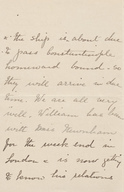 & the ship is about due
to pass Constantinople
homeward bound - so
they will arrive in due
time. We are all very
well. William has been
with Miss Newnham
for the week end in
London & is now getting
to know his relations